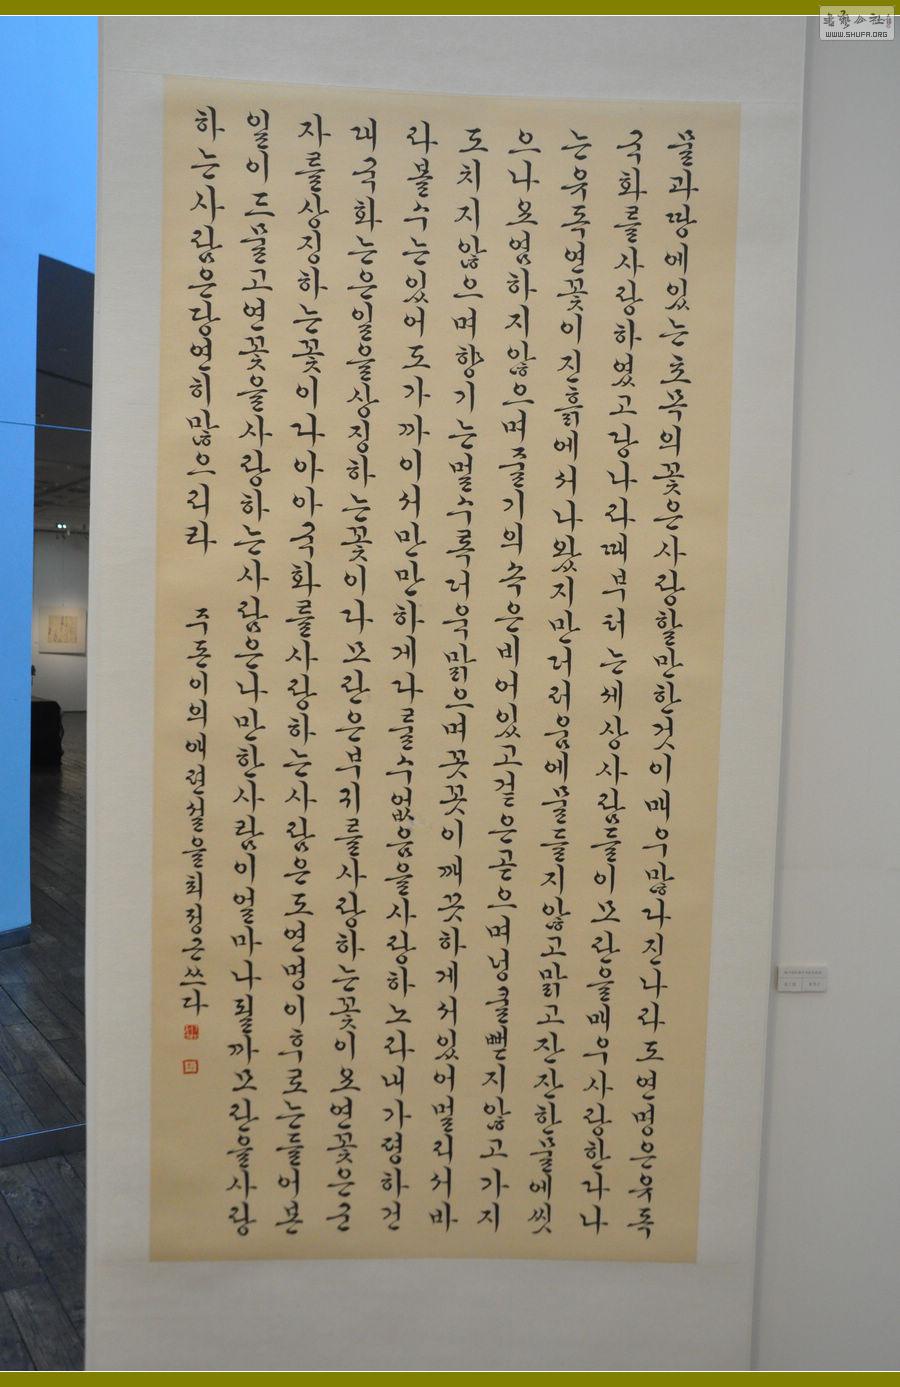 물과땅에있는초목의꽃은사랑할만한것이매우많다진나라도연명은유독
국화를사랑하였고당나라때부터는세상사람들이모란을매우사랑한다나
는유독연꽃이진흙에서나왔지만더러움에물들지않고맑고잔잔한물에씻
으나요염하지않으며줄기의속은비어있고겉은곧으며넝쿨뻗지않고가지
도치지않으며향기는멀수록더욱맑으며꼿꼿이깨끗하게서있어멀리서바
라볼수는있어도가까이서만만하게다룰수없음을사랑하노라내가평하건
대국화는은일을상징하는꽃이라모란은부귀를사랑하는꽃이요연꽃은군
자를상징하는꽃이다아아국화를사랑하는사람은도연명이후로는들어본
일이드물고연꽃을사랑하는사람은나만한사람이얼마나될까모란을사랑
하는사람은당연히많으리라 주돈이의애련설을최정근쓰다
WWW.SHUFA.ORG